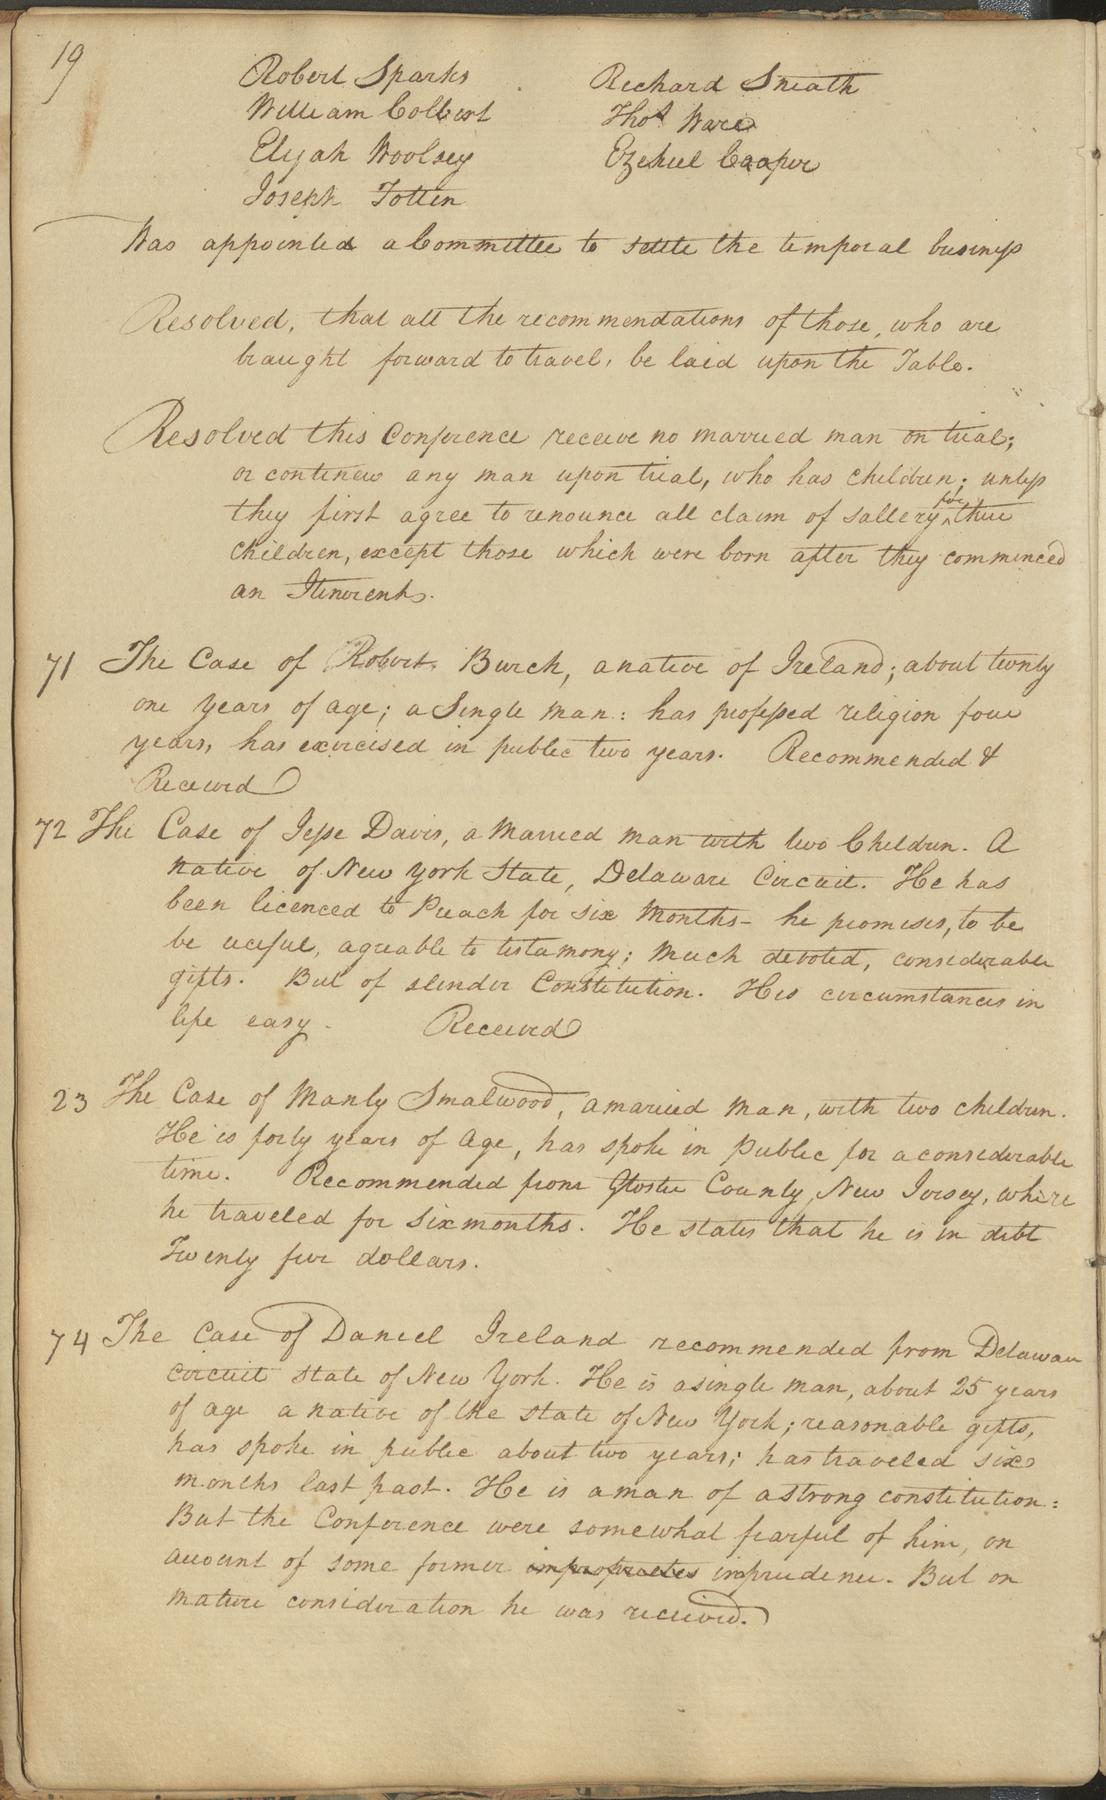 19
Robert Sparks
William Colbert
Elijah Woolsey
Joseph Totten
Richard Sneath
Thos Ware
Ezekiel Cooper
Was appointed a Committee to settle the temporal business
Resolved, that all the recommendations of those, who are
braught forward to travel, be laid upon the Table.
Resolved this Conference receive no married man on trial;
or continew any man upon trial, who has children; unless
they first agree to renounce all claim of sallery for thier
children, except those which were born after they commenced
an Itinerents.
71 The Case of Robert Burch, a native of Ireland; about twenty
one years of age; a Single man: has professed religion four
years, has exercised in public two years. Recommended &
Received
72 The Case of Jesse Davis, a Married man with two Children. A
native of New York State, Delaware Circuit. He has
been licenced to Preach for six Months - he promises, to be
be useful, agreable to testamony; Much devoted, considerable
gifts. But of slender Constitution. His circumstances in
life easy. Received
23 The Case of Manly Smalwood, a married man, with two children.
He is forty years of Age, has spoke in Public for a considerable
time. Recommended from Gloster County, New Jersey, where
he traveled for six months. He states that he is in debt
Twenty five dollars.
74 The Case of Daniel Ireland recommended from Delaware
Circuit state of New York. He is a single man, about 25 years
of age a native of the state of New York; reasonable gifts,
has spoke in public about two years; has traveled six
months last past. He is a man of a strong constitution:
But the Conference were somewhat fearful of him, on
account of some former improprieties imprudence. But on
mature consideration he was received.